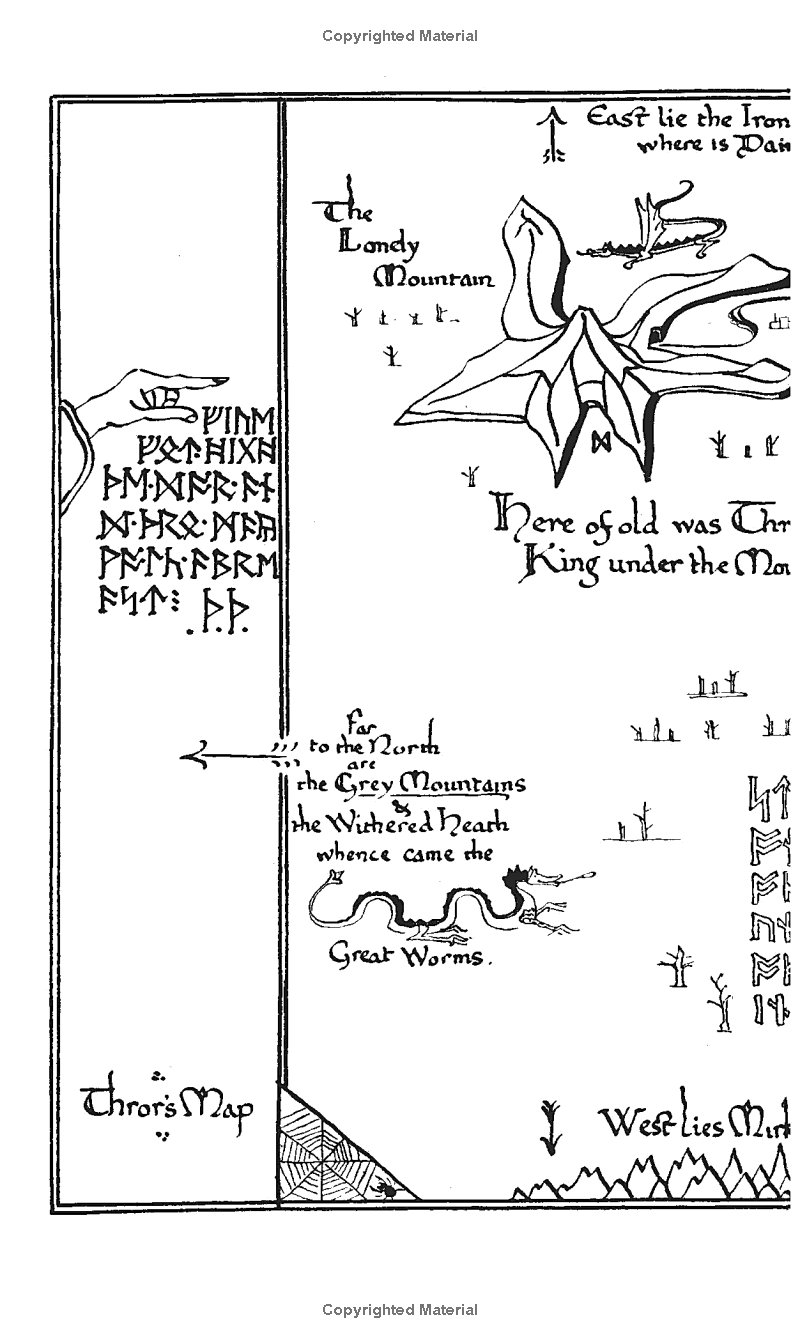 Copyrighted Material
East lie the Iron
where is Dain
The
Lonely
Mountain
ᚠᛁᚢᛖ
ᚠᛟᛏ·ᚻᛁᚷᚻ
ᚦᛖ·ᛞᚩᚱ·ᚪᚾ
ᛞ·ᚦᚱᛟ·ᛗᚪᚣ
ᚹᚪᛚᚳ·ᚪᛒᚱᛖ
ᚪᛋᛏ⁝ .ᚦ.ᚦ.
ᛞ
Here of old was Thr
King under the Mou
Far
to the North
are
the Grey Mountains
&
the Withered Heath
whence came the
Great Worms.
Thror's Map
West lies Mirk
Copyrighted Material